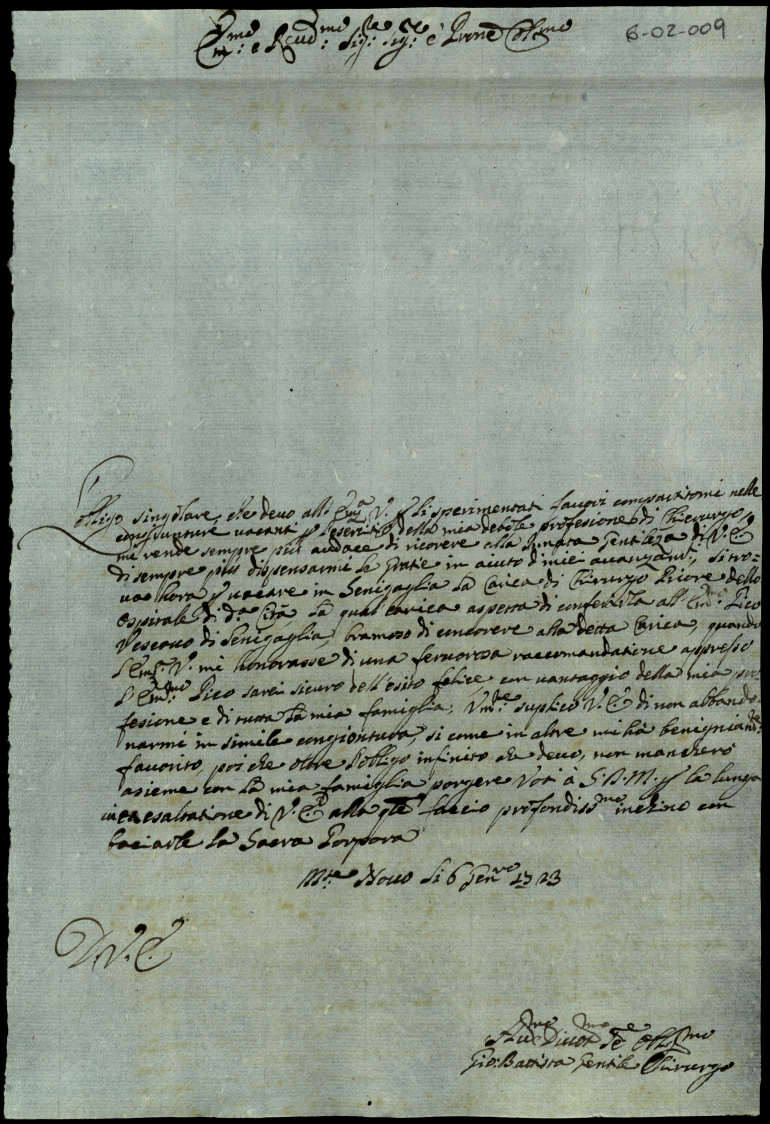 6-02-009
Em.mo e Reud.mo Sig.re Sig.re e Prone Col.mo
L'obligo singolare, che deuo all' Em.za V. p li sperimentati fauori compartitomi nelle
congiunture uacanti p l'esercitio della mia debole profesione di Chierurgo,
mi rende sempre più audace di ricorere alla Innata Gentileza di V. E.
di sempre più dispensarmi le gratie in aiuto d' miei auanzam.ti, si tro-
ua hora p uacare in Senigaglia la Carica di Chirurgo Priore dello
Ospitale di d.a Città la qual carica aspetta di conferirla all' Em.mo Pico
Vescouo di Senigaglia, bramoso di concorere alla detta Carica, quando
l'Em.za V. mi honorasse di una feruorosa raccomandatione appresso
l'Em.mo Pico sarei sicuro dell'esito felice con uantaggio della mia pro-
fesione e di tutta la mia famiglia, Vm.te suplico V. E. di non abbando-
narmi in simile congiontura, si come in altre mi hà benigniam.te
fauorito, poi che oltre l'obligo infinito che deuo, non mancherò
asieme con la mia famiglia porgere Voti à S. D. M. p la lunga
esaltatione di V. E. alla q.le faccio profondiss.mo inchino con
baciarle la Sacra Porpora
M.te Nouo li 6 Gen.ro 1723
D. V. E.
Hu.mo Diuot.mo Se.re Obl.mo
Gio: Battista Gentile Chirurgo